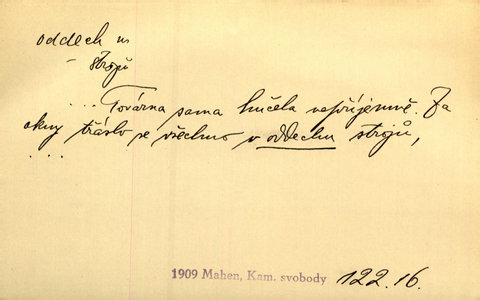 oddech m
- strojů
... Továrna sama hučela nepříjemně. Za
okny třáslo se všechno v oddechu strojů,
....
1909 Mahen, Kam. svobody 122.16.